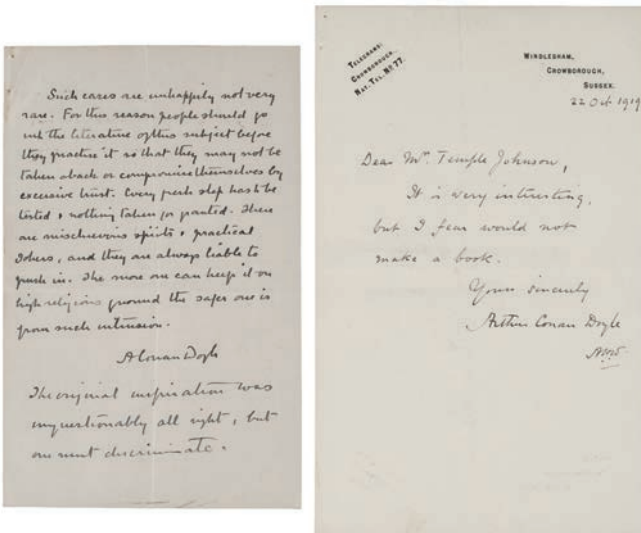 Such cases are unhappily not very
rare. For this reason people should go
into the literature of this subject before
they practice it so that they may not be
taken aback or compromise themselves by
excessive trust. Every fresh step has to be
tested & nothing taken for granted. There
are mischievous spirits & practical
Jokers, and they are always liable to
push in. The more one can keep it on
high religious ground the safer one is
from such intrusion.
A Conan Doyle
The original inspiration was
unquestionably all right, but
one must discriminate.
TELEGRAMS:
CROWBOROUGH.
NAT. TEL. No 77.
WINDLESHAM,
CROWBOROUGH,
SUSSEX.
22 Oct 1919
Dear Mr. Temple Johnson,
It is very interesting,
but I fear would not
make a book.
Yours sincerely
Arthur Conan Doyle